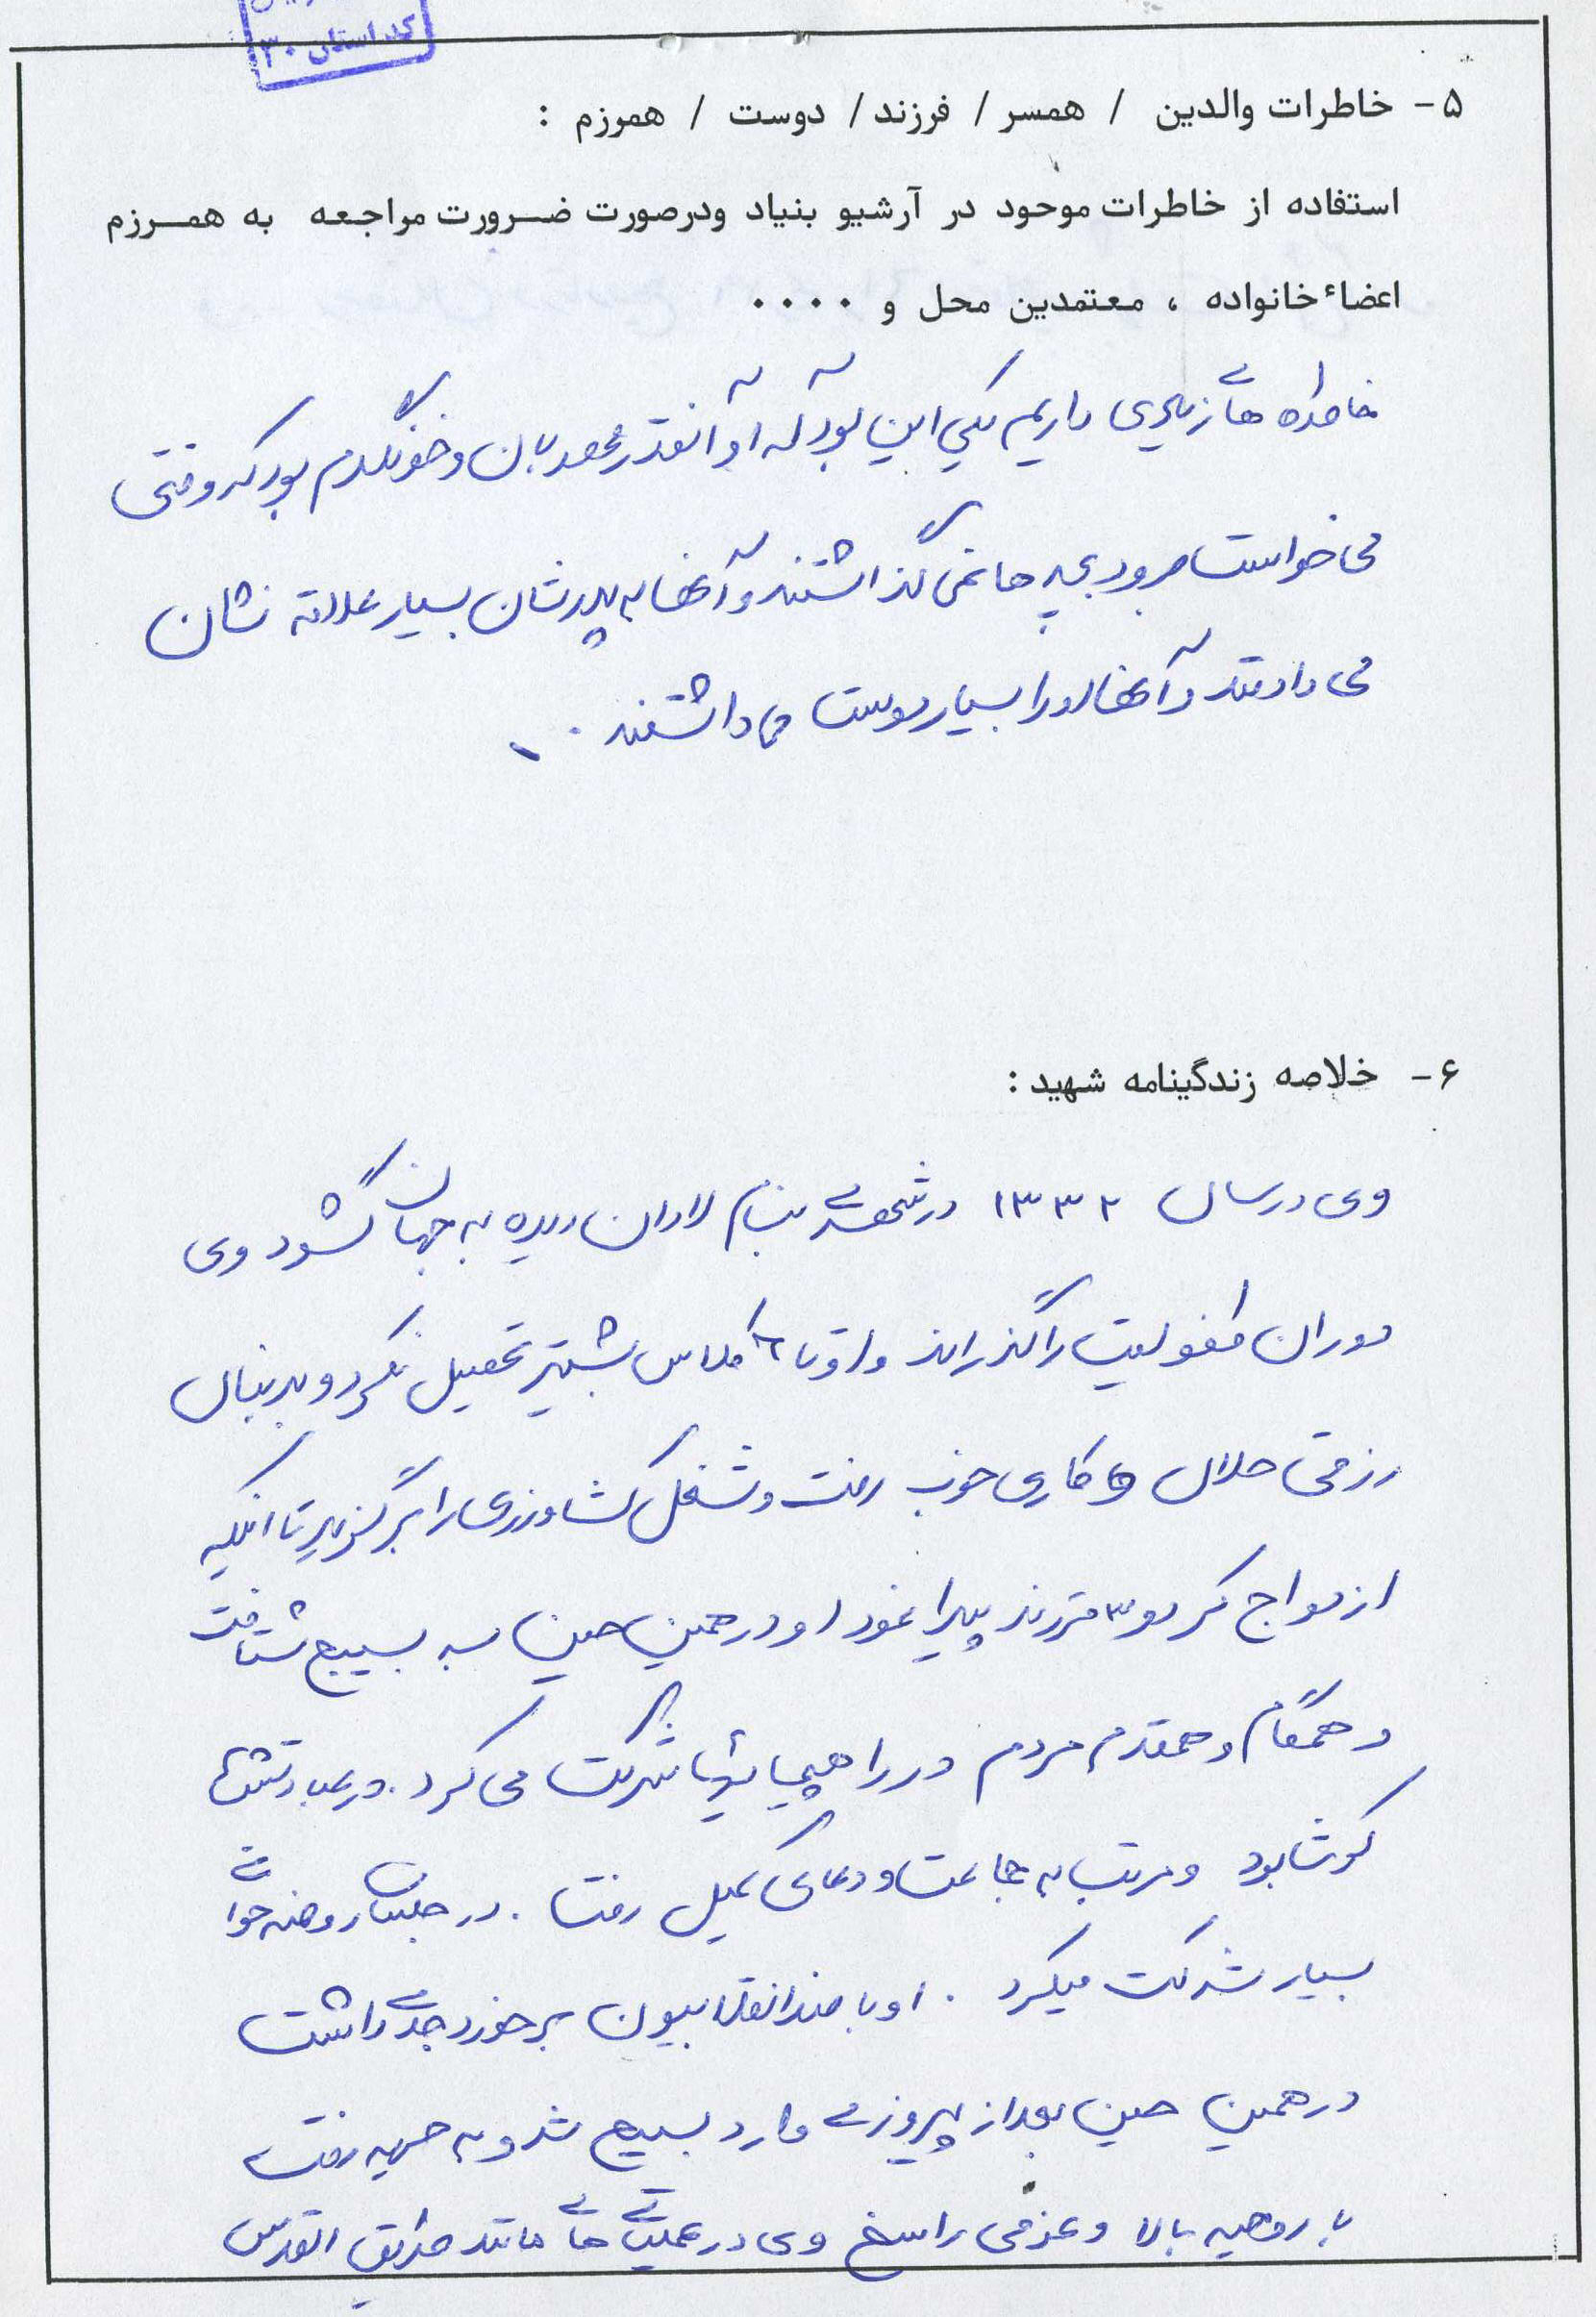 کد استان ۳۰
۵- خاطرات والدین / همسر / فرزند / دوست / همرزم :
استفاده از خاطرات موحود در آرشیو بنیاد ودرصورت ضرورت مراجعه به همرزم
اعضاء خانواده ، معتمدین محل و ۰۰۰۰
خاطره های زیادی داریم یکی این بود که او آنقدر مهربان و خونگرم بود که وقتی
می خواست برود بچه ها نمی گذاشتند و آنها به پدرشان بسیار علاقه نشان
می دادند و آنها او را بسیار دوست می داشتند .
۶- خلاصه زندگینامه شهید :
وی در سال ۱۳۳۲ در شهری بنام لاران دیده به جهان گشود وی
دوران طفولیت را گذراند و او تا کلاس بیشتر تحصیل نکرد و بدنبال
رزقی حلال و کاری خوب رفت و شغل کشاورزی را برگزید تا اینکه
ازدواج کرد و ۳ فرزند پیدا نمود او در همین حین به بسیج شتافت
و همگام و همقدم مردم در راهپیمائیها شرکت می کرد . در عبادتش
کوشا بود و مرتب به جماعت و دعای کمیل رفت . در جلسات روضه خوانی
بسیار شرکت میکرد . او با ضد انقلابیون برخورد جدی داشت
در همین حین بعد از پیروزی وارد بسیج شد و به جبهه رفت
با روحیه بالا و عزمی راسخ وی در عملیاتی های مانند طریق القدس